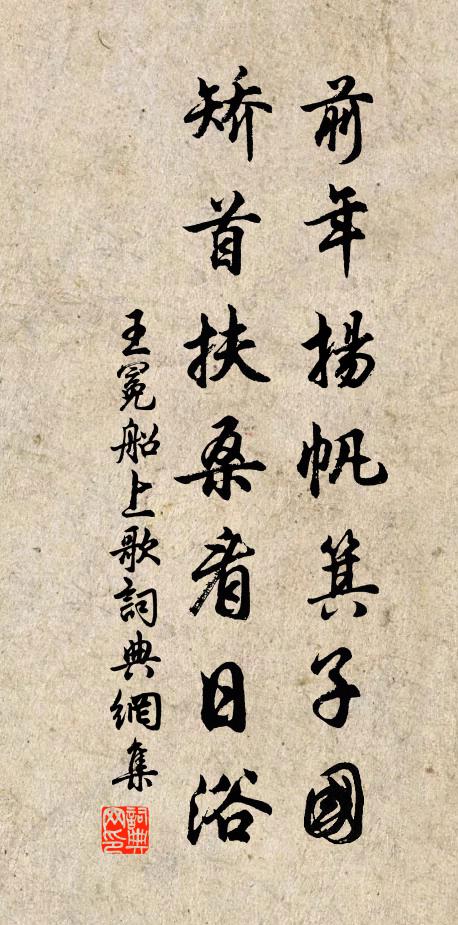 前年揚帆箕子國
矯首扶桑看日浴
王冕船上歌詞典網集
詞典
网印